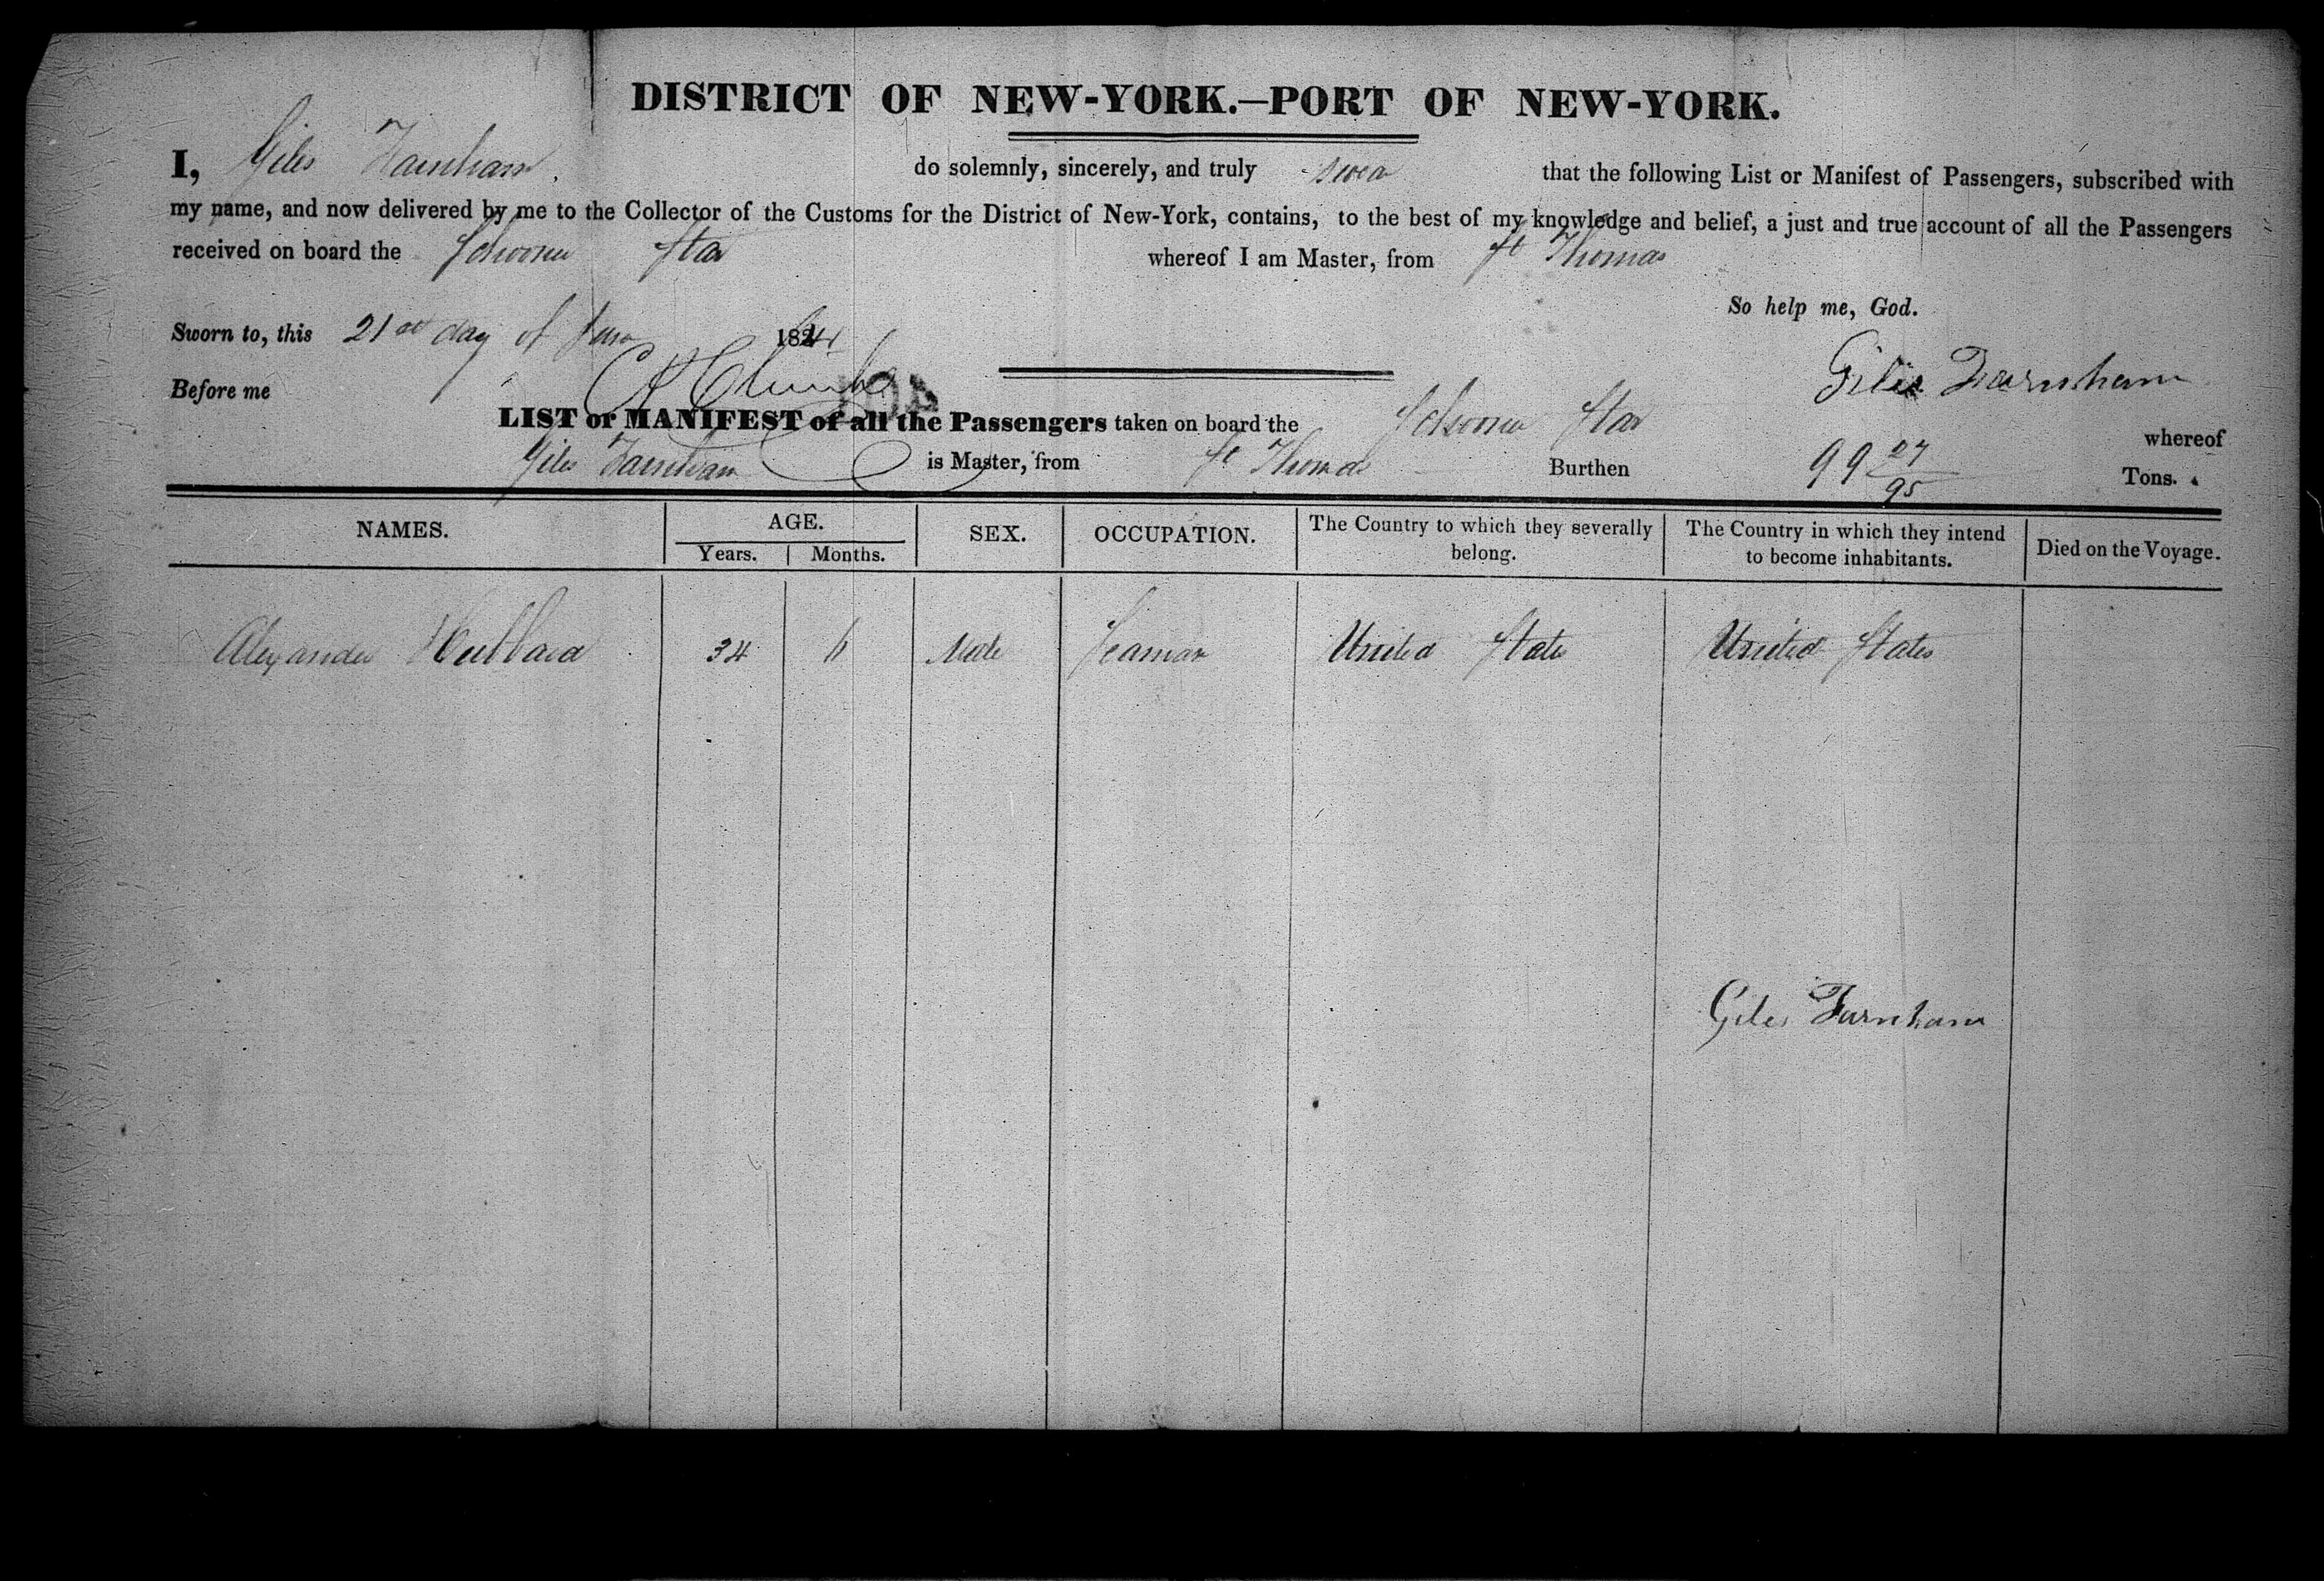 DISTRICT OF NEW-YORK.—PORT OF NEW-YORK.
I, Giles Farnham, do solemnly, sincerely, and truly swear that the following List or Manifest of Passengers, subscribed with
my name, and now delivered by me to the Collector of the Customs for the District of New-York, contains, to the best of my knowledge and belief, a just and true account of all the Passengers
received on board the Schooner Star whereof I am Master, from St Thomas
So help me, God.
Sworn to, this 21st day of June 184
Giles Farnham
Before me
LIST or MANIFEST of all the Passengers taken on board the Schooner Star whereof
Giles Farnham is Master, from St Thomas Burthen 99 27/95 Tons.
NAMES. AGE. SEX. OCCUPATION. The Country to which they severally belong. The Country in which they intend to become inhabitants. Died on the Voyage.
Years. Months.
Alexander Hubbard 34 6 Male Seaman United States United States
Giles Farnham